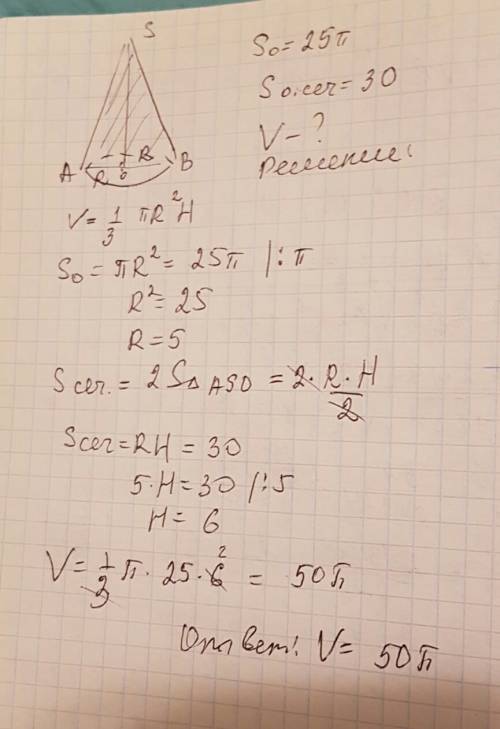 S
A R о R B
S₀ = 25π
S о.сеч = 30
V – ?
Решение:
V = 1/3 πR²H
S₀ = πR² = 25π |:π
R² = 25
R = 5
S сеч. = 2S△ASO = 2·R·H/2
Sсеч = RH = 30
5·H = 30 |:5
H = 6
V = 1/3 π · 25 · 6 2 = 50π
Ответ: V = 50π